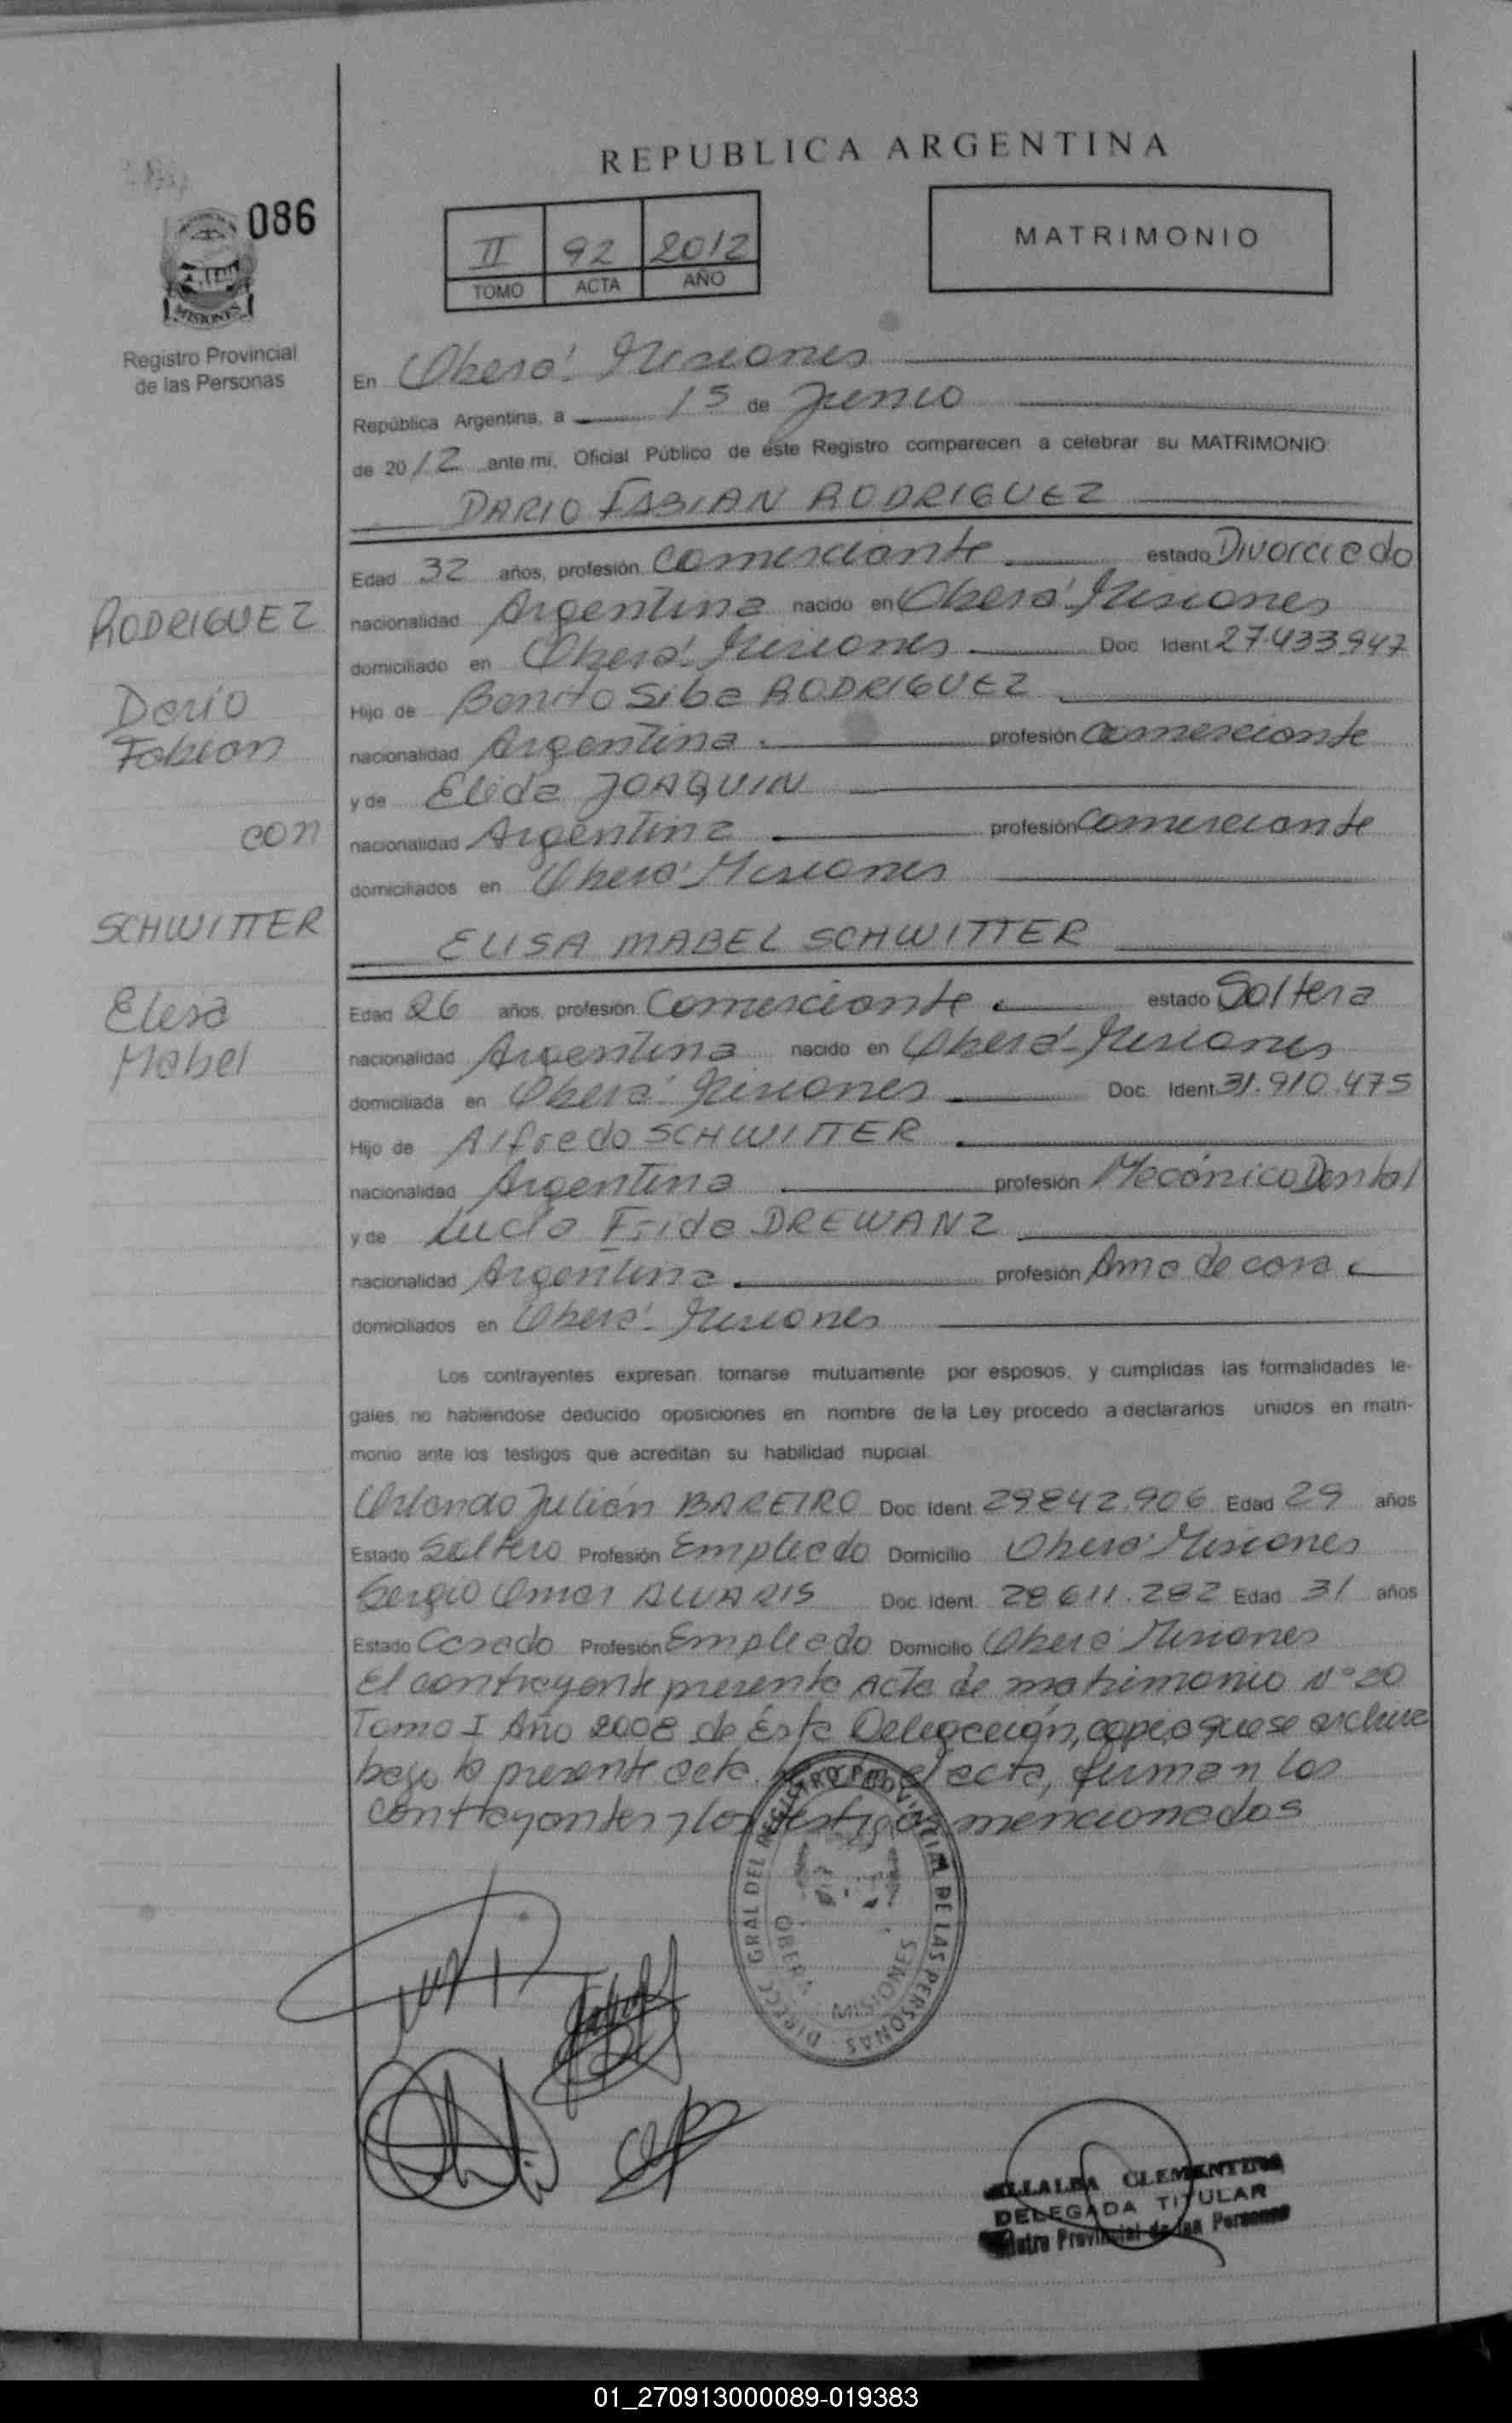 REPUBLICA ARGENTINA
086
MISIONES
Registro Provincial
de las Personas
II 92 2012
TOMO ACTA AÑO
MATRIMONIO
En Oberá - Misiones
República Argentina, a 15 de Junio
de 2012 ante mi, Oficial Público de este Registro comparecen a celebrar su MATRIMONIO:
DARIO FABIAN RODRIGUEZ
Edad 32 años, profesión comerciante estado Divorciado
nacionalidad Argentina nacido en Oberá - Misiones
domiciliado en Oberá - Misiones Doc. Ident. 27.433.947
Hijo de Benito Siba RODRIGUEZ
nacionalidad Argentina profesión comerciante
y de Elida JOAQUIN
nacionalidad Argentina profesión comerciante
domiciliados en Oberá Misiones
RODRIGUEZ
Dario
Fabian
con
SCHWITTER
Elisa
Mabel
ELISA MABEL SCHWITTER
Edad 26 años, profesión Comerciante estado Soltera
nacionalidad Argentina nacido en Oberá - Misiones
domiciliada en Oberá - Misiones Doc. Ident. 31.910.475
Hijo de Alfredo SCHWITTER
nacionalidad Argentina profesión Mecánico Dental
y de Lucia Frida DREWANZ
nacionalidad Argentina profesión Ama de casa
domiciliados en Oberá - Misiones
Los contrayentes expresan tomarse mutuamente por esposos, y cumplidas las formalidades le-
gales, no habiéndose deducido oposiciones en nombre de la Ley procedo a declararlos unidos en matri-
monio ante los testigos que acreditan su habilidad nupcial.
Orlando Julián BAREIRO Doc. Ident. 29842.906 Edad 29 años
Estado Soltero Profesión Empleado Domicilio Oberá Misiones
Sergio Omar ALVARIS Doc. Ident. 28.611.282 Edad 31 años
Estado Casado Profesión Empleado Domicilio Oberá Misiones
El contrayente presenta Acta de matrimonio Nº 20
Tomo I Año 2008 de Ésta Delegación, copia que se archiva
bajo la presente acta. el acta, firman los
contrayentes y los testigos mencionados
DIRECC. GRAL DEL REGISTRO PROVINCIAL DE LAS PERSONAS
OBERA MISIONES
CLEMENTINA
DELEGADA TITULAR
Provincial de las Personas
01_270913000089-019383